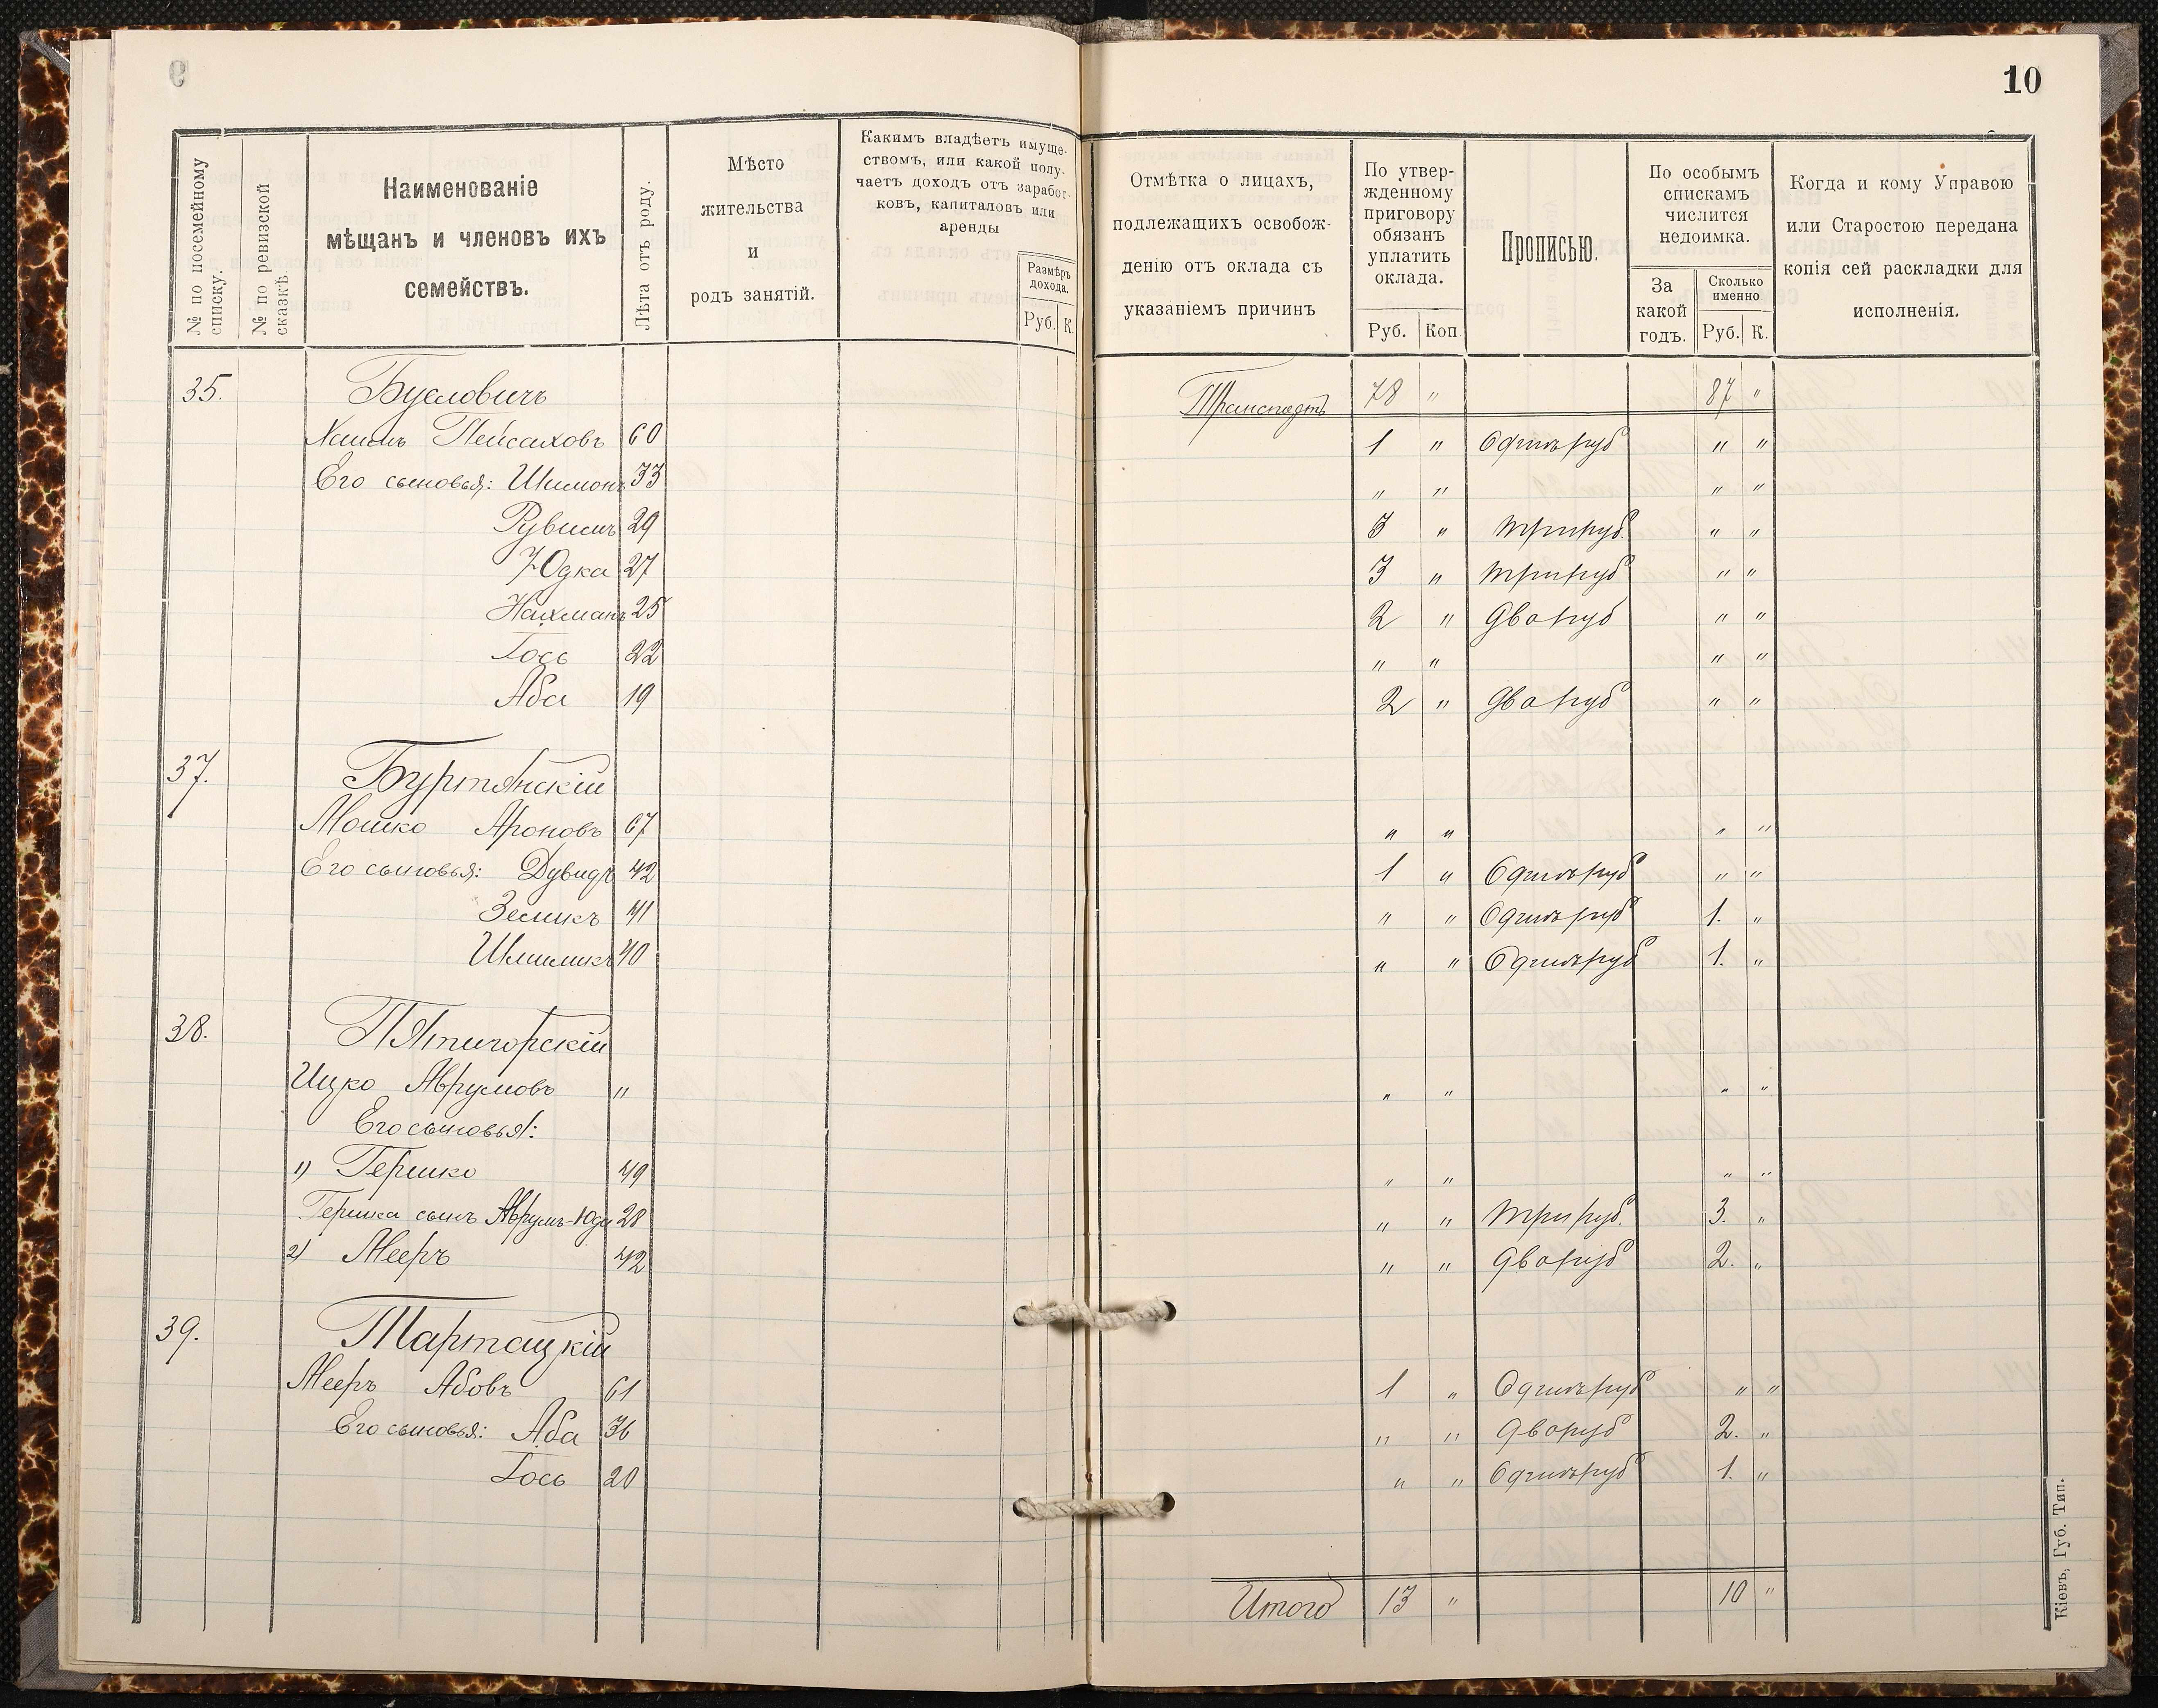 10
№ по посемейному списку.
№ по ревизской сказкѣ.
Наименованіе
мѣщанъ и членовъ ихъ
семействъ.
Лѣта отъ роду.
Мѣсто
жительства
и
родъ занятій.
Какимъ владѣетъ имуще-
ствомъ, или какой полу-
чаетъ доходъ отъ заработ-
ковъ, капиталовъ или
аренды
Размѣръ
дохода.
Руб. К.
Отмѣтка о лицахъ,
подлежащихъ освобож-
денію отъ оклада съ
указаніемъ причинъ
По утвер-
жденному
приговору
обязанъ
уплатить
оклада.
Руб. Коп.
Прописью.
По особымъ
спискамъ
числится
недоимка.
За
какой
годъ.
Сколько
именно
Руб. К.
Когда и кому Управою
или Старостою передана
копія сей раскладки для
исполненія.
35. Бусловичъ Транспортъ 78 " 87 "
Хаимъ Пейсаховъ 60 1 " Одинъ руб " "
Его сыновья: Шимонъ 33 " " " "
Рувимъ 29 3 " три руб. " "
Юдка 27 3 " три руб " "
Нахманъ 25 2 " два руб " "
Іось 22 " " " "
Аба 19 2 " два руб " "
37. Буртянскій
Мошко Ароновъ 67 " " " "
Его сыновья: Дувидъ 42 1 " Одинъ руб " "
Зеликъ 41 " " Одинъ руб 1. "
Шмиликъ 40 " " Одинъ руб 1. "
38. Пятигорскій
Ицко Аврумовъ " " " " "
Его сыновья:
1) Гершко 49 " " " "
Гершка сынъ Аврумъ-Юда 28 " " три руб. 3. "
2) Мееръ 42 " " два руб 2. "
39. Тартацкій
Мееръ Абовъ 61 1 " Одинъ руб " "
Его сыновья: Аба 36 " " два руб 2. "
Іось 20 " " Одинъ руб 1. "
Итого 13 " 10 "
Кіевъ, Губ. Тип.